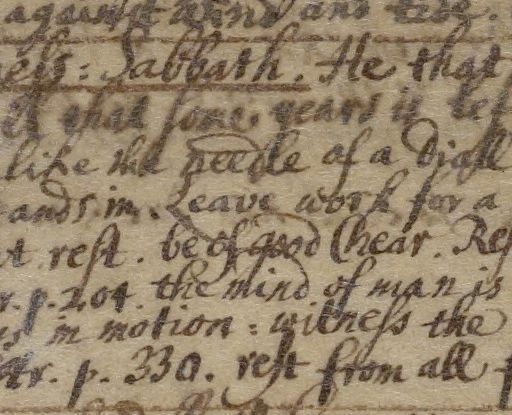 against wind and tide.
ess: Sabbath. He that
that some years is
like the needle of a Diall
and in. Leave work for a
rest. be of good Chear. Res
r. p. 204. the mind of man is
us in motion: witness the
tr. p. 330. rest from all f